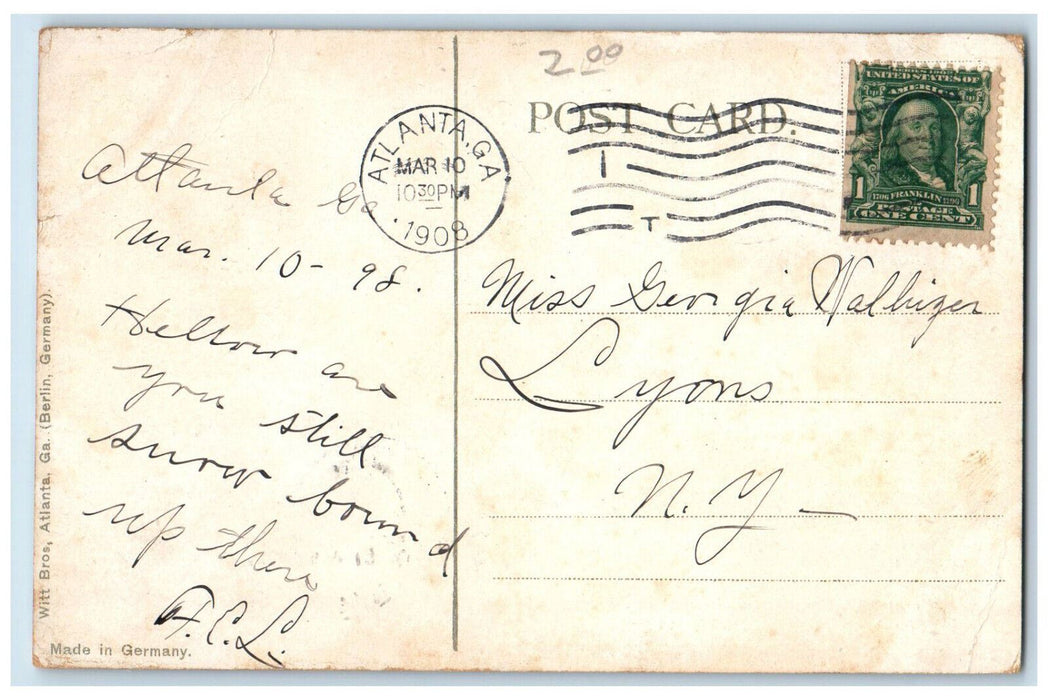 2.00
POST CARD.
ATLANTA, GA
MAR 10
10 30 PM
1908
1
T
SERIES 1902
UNITED STATES OF
AMERICA
1 1706 FRANKLIN 1790 1
POSTAGE
ONE CENT
Atlanta Ga
Mar. 10 - 98.
Hellow are
you still
snow bound
up there
F.E.L.
Miss Georgia
Lyons
N.Y.
Witt Bros, Atlanta, Ga. (Berlin, Germany).
Made in Germany.